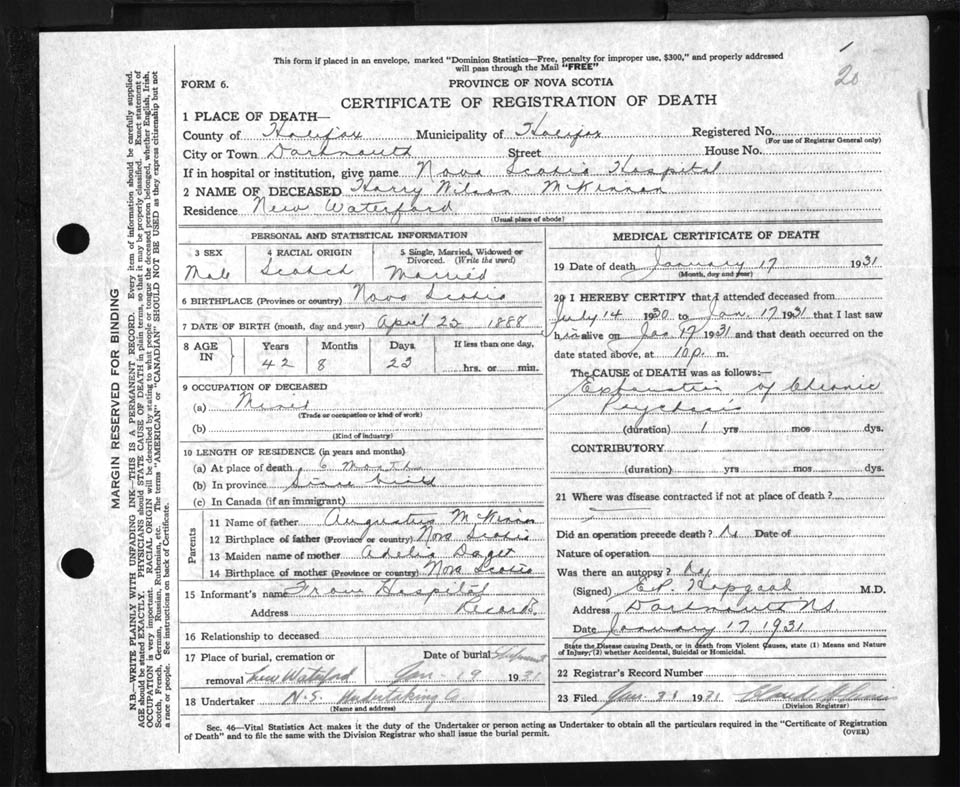 1
20
This form if placed in an envelope, marked "Dominion Statistics—Free, penalty for improper use, $300," and properly addressed
will pass through the Mail "FREE"
FORM 6. PROVINCE OF NOVA SCOTIA
CERTIFICATE OF REGISTRATION OF DEATH
1 PLACE OF DEATH—
County of Halifax Municipality of Halifax Registered No.
(For use of Registrar General only)
City or Town Dartmouth Street House No.
If in hospital or institution, give name Nova Scotia Hospital
2 NAME OF DECEASED Harry Wilson McKinnon
Residence New Waterford
(Usual place of abode)
PERSONAL AND STATISTICAL INFORMATION
3 SEX 4 RACIAL ORIGIN 5 Single, Married, Widowed or
Divorced. (Write the word)
Male Scotch Married
6 BIRTHPLACE (Province or country) Nova Scotia
7 DATE OF BIRTH (month, day and year) April 25 1888
8 AGE IN Years Months Days If less than one day,
42 8 23 hrs. or min.
9 OCCUPATION OF DECEASED
(a) Miner
(Trade or occupation or kind of work)
(b)
(Kind of industry)
10 LENGTH OF RESIDENCE (in years and months)
(a) At place of death 6 Months
(b) In province Since birth
(c) In Canada (if an immigrant)
Parents
11 Name of father Augustus McKinnon
12 Birthplace of father (Province or country) Nova Scotia
13 Maiden name of mother Adelia
14 Birthplace of mother (Province or country) Nova Scotia
15 Informant's name From Hospital
Address Records.
16 Relationship to deceased
17 Place of burial, cremation or Date of burial
removal New Waterford Jan. 19 1931
18 Undertaker N.S. Undertaking Co
(Name and address)
MEDICAL CERTIFICATE OF DEATH
19 Date of death January 17 1931
(Month, day and year)
20 I HEREBY CERTIFY that I attended deceased from
July 14 1930 to Jan. 17 1931 that I last saw
him alive on Jan 17 1931 and that death occurred on the
date stated above, at 10 p. m.
The CAUSE of DEATH was as follows:—
Exhaustion of Chronic
Psychosis
(duration) 1 yrs mos dys.
CONTRIBUTORY
(duration) yrs. mos. dys.
21 Where was disease contracted if not at place of death?
Did an operation precede death? No Date of
Nature of operation
Was there an autopsy? No
(Signed) E.P. Hopgood M.D.
Address Dartmouth NS
Date January 17 1931
State the Disease causing Death, or in death from Violent Causes, state (1) Means and Nature
of Injury, (2) whether Accidental, Suicidal or Homicidal.
22 Registrar's Record Number
23 Filed Jan. 31 1931
(Division Registrar)
Sec. 46—Vital Statistics Act makes it the duty of the Undertaker or person acting as Undertaker to obtain all the particulars required in the "Certificate of Registration
of Death" and to file the same with the Division Registrar who shall issue the burial permit.
(OVER)
MARGIN RESERVED FOR BINDING
N.B.—WRITE PLAINLY WITH UNFADING INK—THIS IS A PERMANENT RECORD. Every item of information should be carefully supplied.
AGE should be stated EXACTLY. PHYSICIANS should STATE CAUSE OF DEATH in plain terms, so that it may be properly classified. Exact statement of
OCCUPATION is very important. RACIAL ORIGIN will be described by stating to what people or tongue the deceased person belonged, whether English, Irish,
Scotch, French, German, Russian, Ruthenian, etc. The terms "AMERICAN" or "CANADIAN" SHOULD NOT BE USED as they express citizenship but not
a race or people. See instructions on back of Certificate.